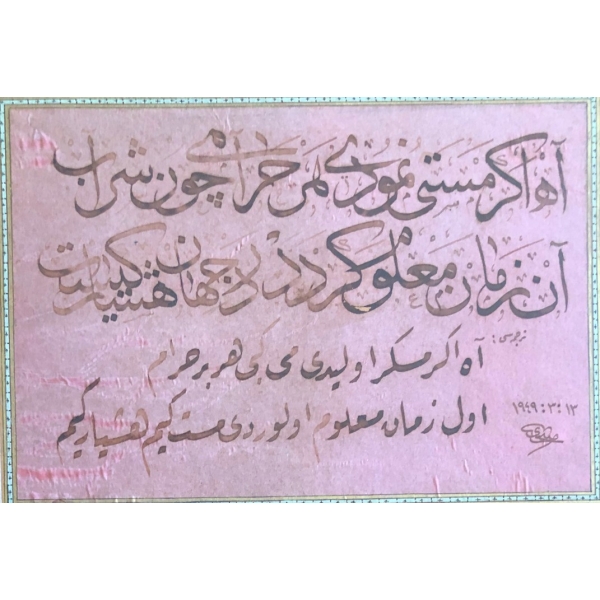 آه اگر مستی نمودی هر حرامی چون شراب
آن زمان معلوم گردد در جهان هشیار کیست
ترجمه سی :
آه اگر مسکر اولیدی می کبی هر بر حرام
اول زمان معلوم اولوردی مست کیم هشیار کیم
١٩٤٩ : ٣ : ١٢